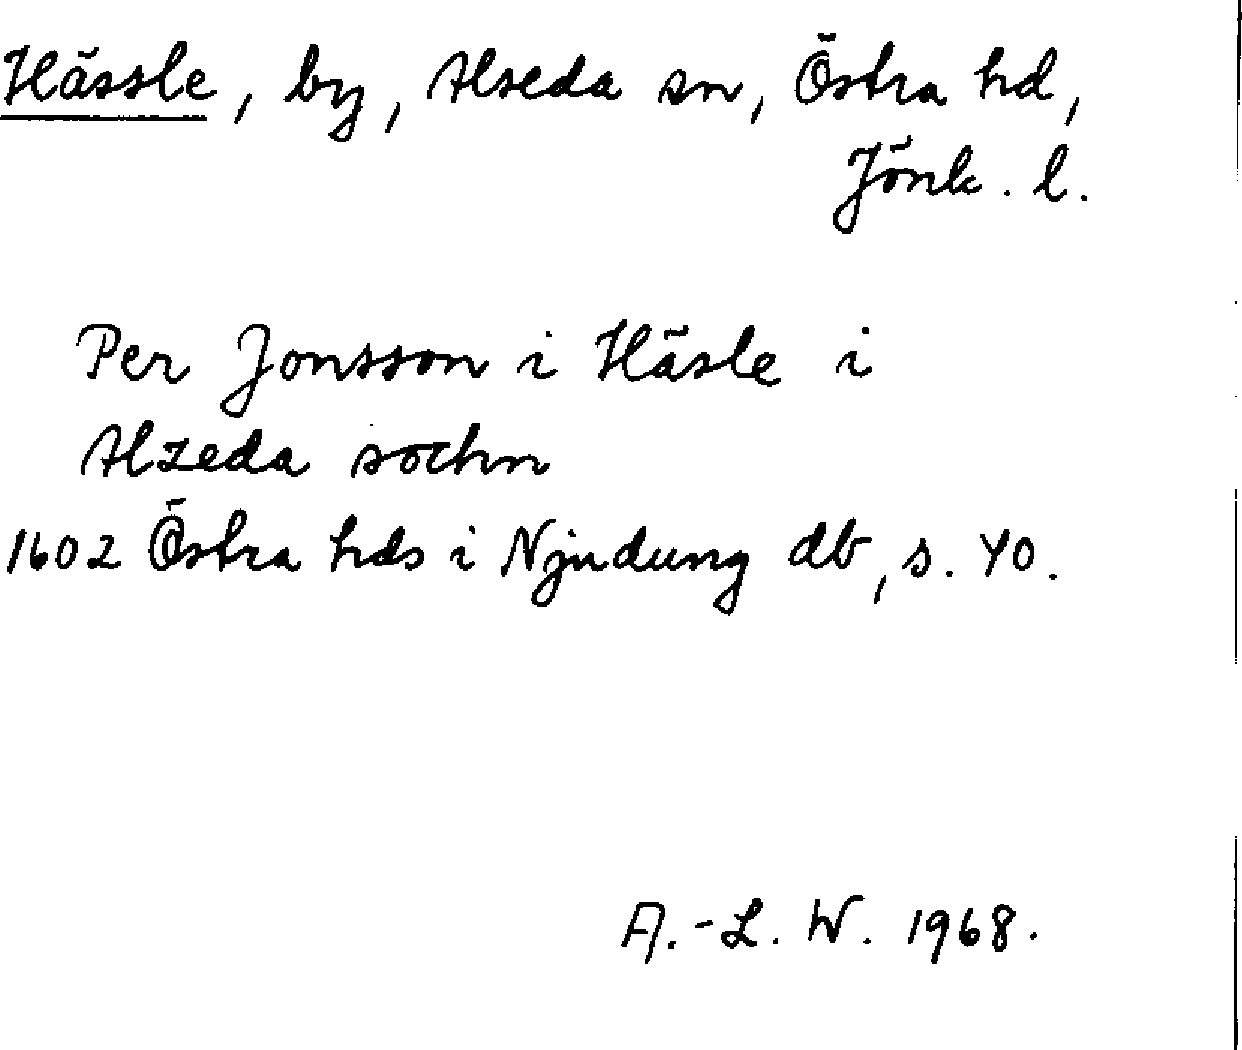 Hässle, by, Alseda sn, Östra hd,
Jönk. l.
Per Jonsson i Häsle i
Alzeda sochn
1602 Östra hds i Njudung db, s. 40.
A.-L. W. 1968.